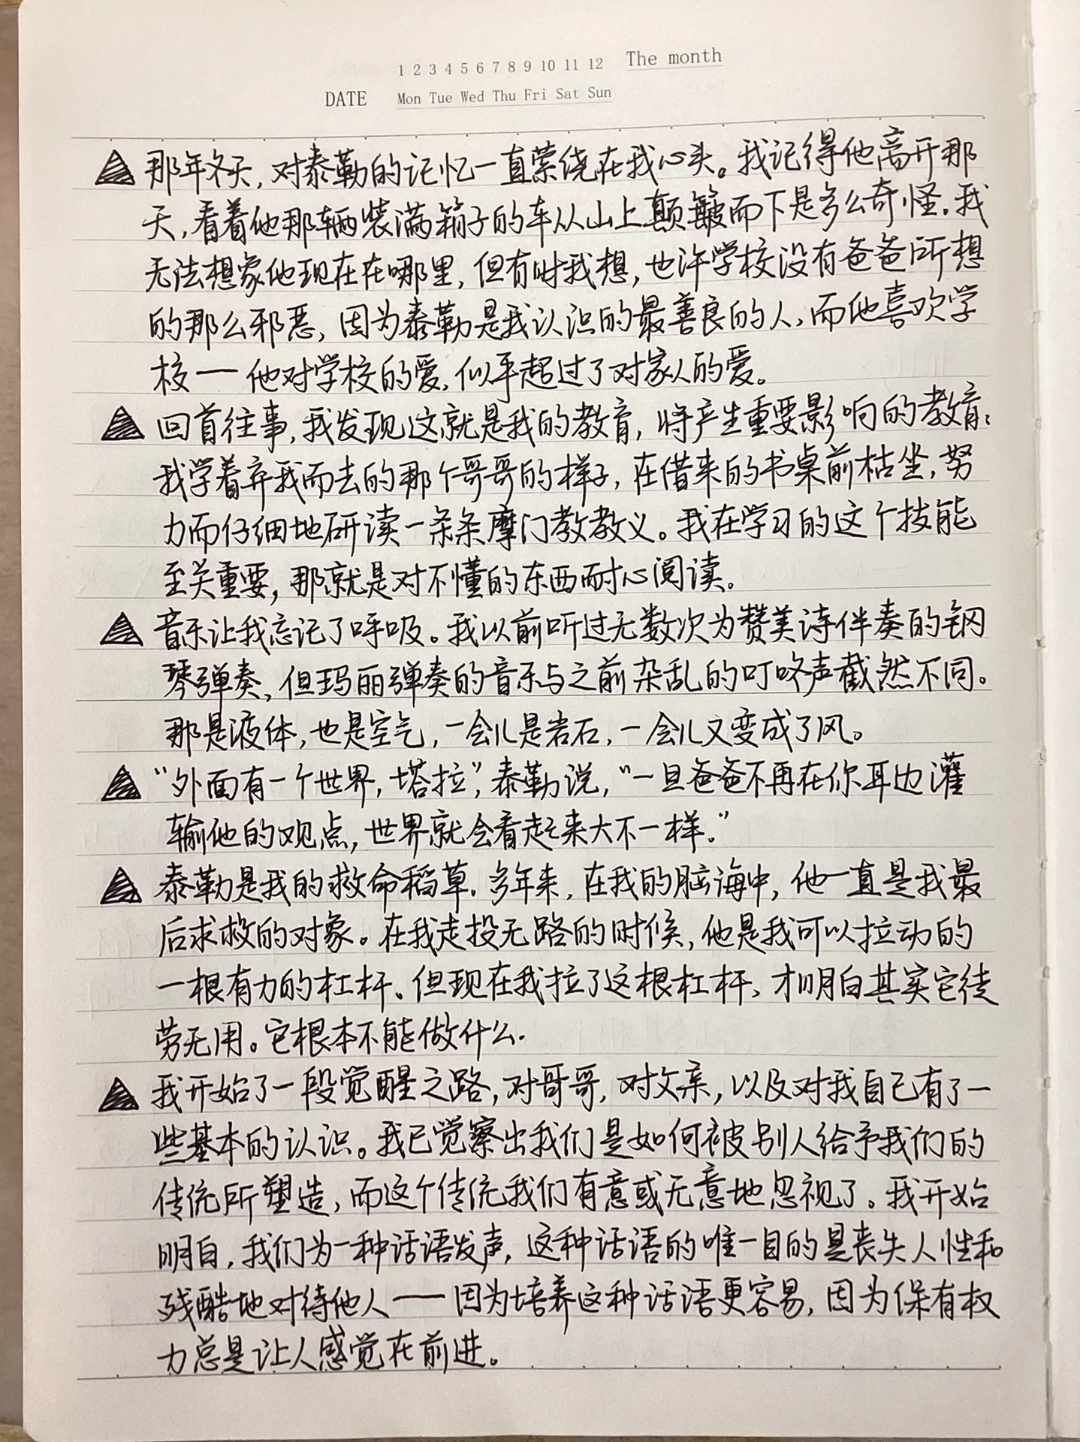 1 2 3 4 5 6 7 8 9 10 11 12 The month
DATE Mon Tue Wed Thu Fri Sat Sun
那年冬天,对泰勒的记忆一直萦绕在我心头。我记得他离开那
天,看着他那辆装满箱子的车从山上颠簸而下是多么奇怪。我
无法想象他现在在哪里,但有时我想,也许学校没有爸爸所想
的那么邪恶,因为泰勒是我认识的最善良的人,而他喜欢学
校——他对学校的爱,似乎超过了对家人的爱。
回首往事,我发现这就是我的教育,将产生重要影响的教育:
我学着弃我而去的那个哥哥的样子,在借来的书桌前枯坐,努
力而仔细地研读一条条摩门教教义。我在学习的这个技能
至关重要,那就是对不懂的东西耐心阅读。
音乐让我忘记了呼吸。我以前听过无数次为赞美诗伴奏的钢
琴弹奏,但玛丽弹奏的音乐与之前杂乱的叮咚声截然不同。
那是液体,也是空气,一会儿是岩石,一会儿又变成了风。
“外面有一个世界,塔拉”,泰勒说,“一旦爸爸不再在你耳边灌
输他的观点,世界就会看起来大不一样。”
泰勒是我的救命稻草。多年来,在我的脑海中,他一直是我最
后求救的对象。在我走投无路的时候,他是我可以拉动的
一根有力的杠杆。但现在我拉了这根杠杆,才明白其实它徒
劳无用。它根本不能做什么.
我开始了一段觉醒之路,对哥哥,对父亲,以及对我自己有了一
些基本的认识。我已觉察出我们是如何被别人给予我们的
传统所塑造,而这个传统我们有意或无意地忽视了。我开始
明白,我们为一种话语发声,这种话语的唯一目的是丧失人性和
残酷地对待他人——因为培养这种话语更容易,因为保有权
力总是让人感觉在前进。